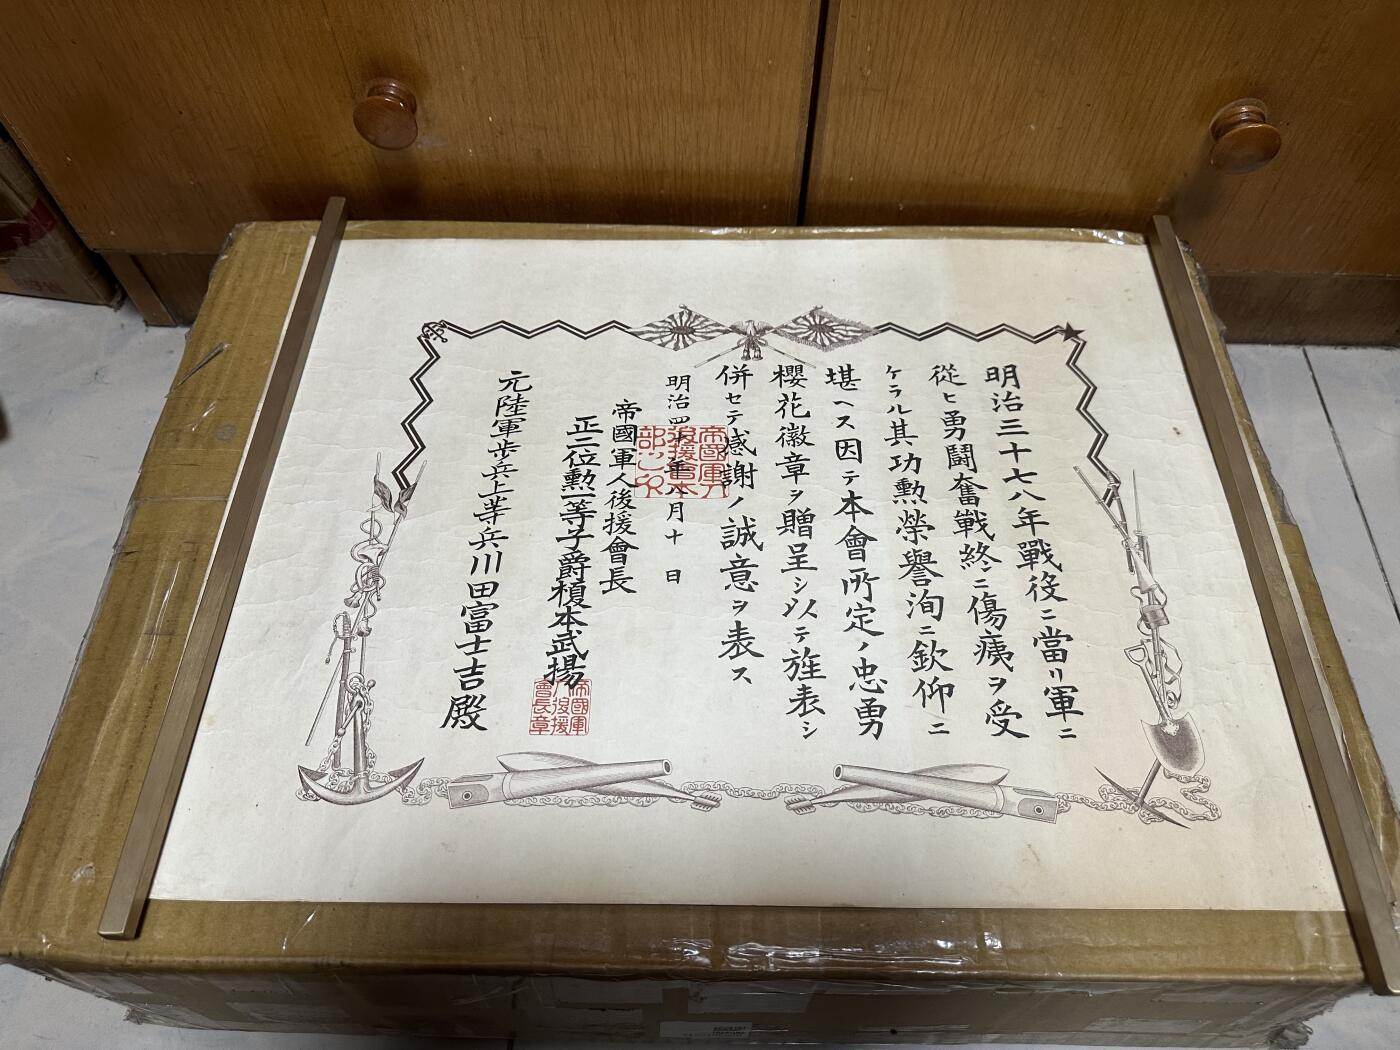 明治三十七八年戰役ニ當リ軍ニ
從ヒ勇鬪奮戰終ニ傷痍ヲ受
ケラル其功勲榮譽洵ニ欽仰ニ
堪ヘス因テ本會所定ノ忠勇
櫻花徽章ヲ贈呈シ以テ旌表シ
併セテ感謝ノ誠意ヲ表ス
明治四十年八月十日
帝國軍人後援會長
正二位勲一等子爵榎本武揚
帝國軍人後援會長章
元陸軍歩兵上等兵川田富士吉殿